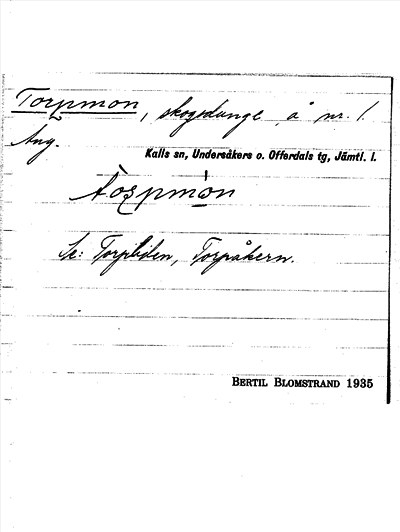 Torpmon, skogsdunge å nr. 1.
Äng.
Kalls sn, Undersåkers o. Offerdals tg, Jämtl. l.
tòrpmòn
Se: Torpliden, Torpåkern.
BERTIL BLOMSTRAND 1935